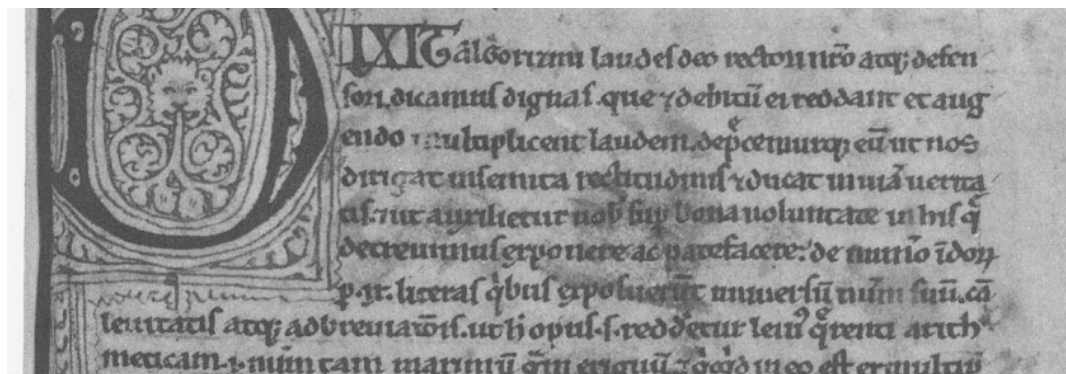 DIXIT algorizmi laudes deo rectori nr̄o atq; defen
sori dicamus dignas. que ⁊ debitū ei reddant et aug
endo multiplicent laudem. dep̄cemurq; eū ut nos
dirigat in semita rectitudinis ⁊ ducat in uiā uerita
tis. ⁊ ut auxilietur nob̄ sup̄ bona uoluntate in his q̄
decreuimus exponere ac patefacere: de num̄o īdoꝝ
p̄ .ix. literas q̄bus exposuer̄t uniuersū num̄ suū. cā
leuitatis atq; adbreuiat̄ōis. ut h̄ opus .s. redderetur leui᷒ q̄renti arith
meticam .i. num̄ tam maximū q̄m exiguū. ⁊ q̄cq̄d in eo est ex multip̄